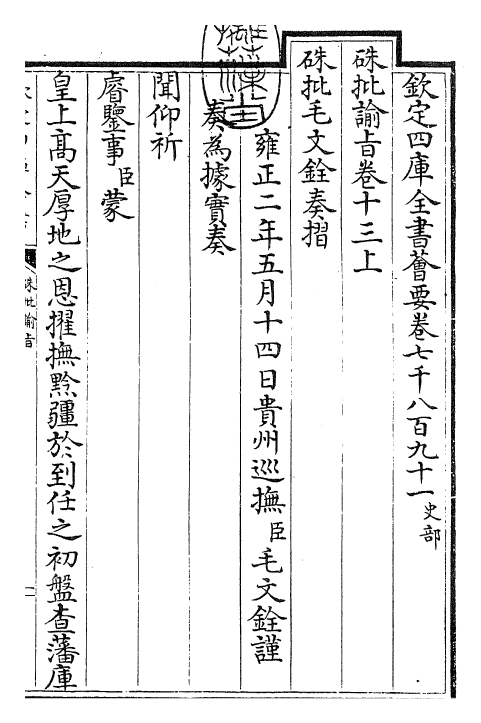 欽定四庫全書薈要卷七千八百九十一史部
硃批諭旨卷十三上
硃批毛文銓奏摺
雍正二年五月十四日貴州巡撫臣毛文銓謹
奏為據實奏
聞仰祈
睿鑒事臣蒙
皇上高天厚地之恩擢撫黔疆於到任之初盤查藩庫
硃批諭旨